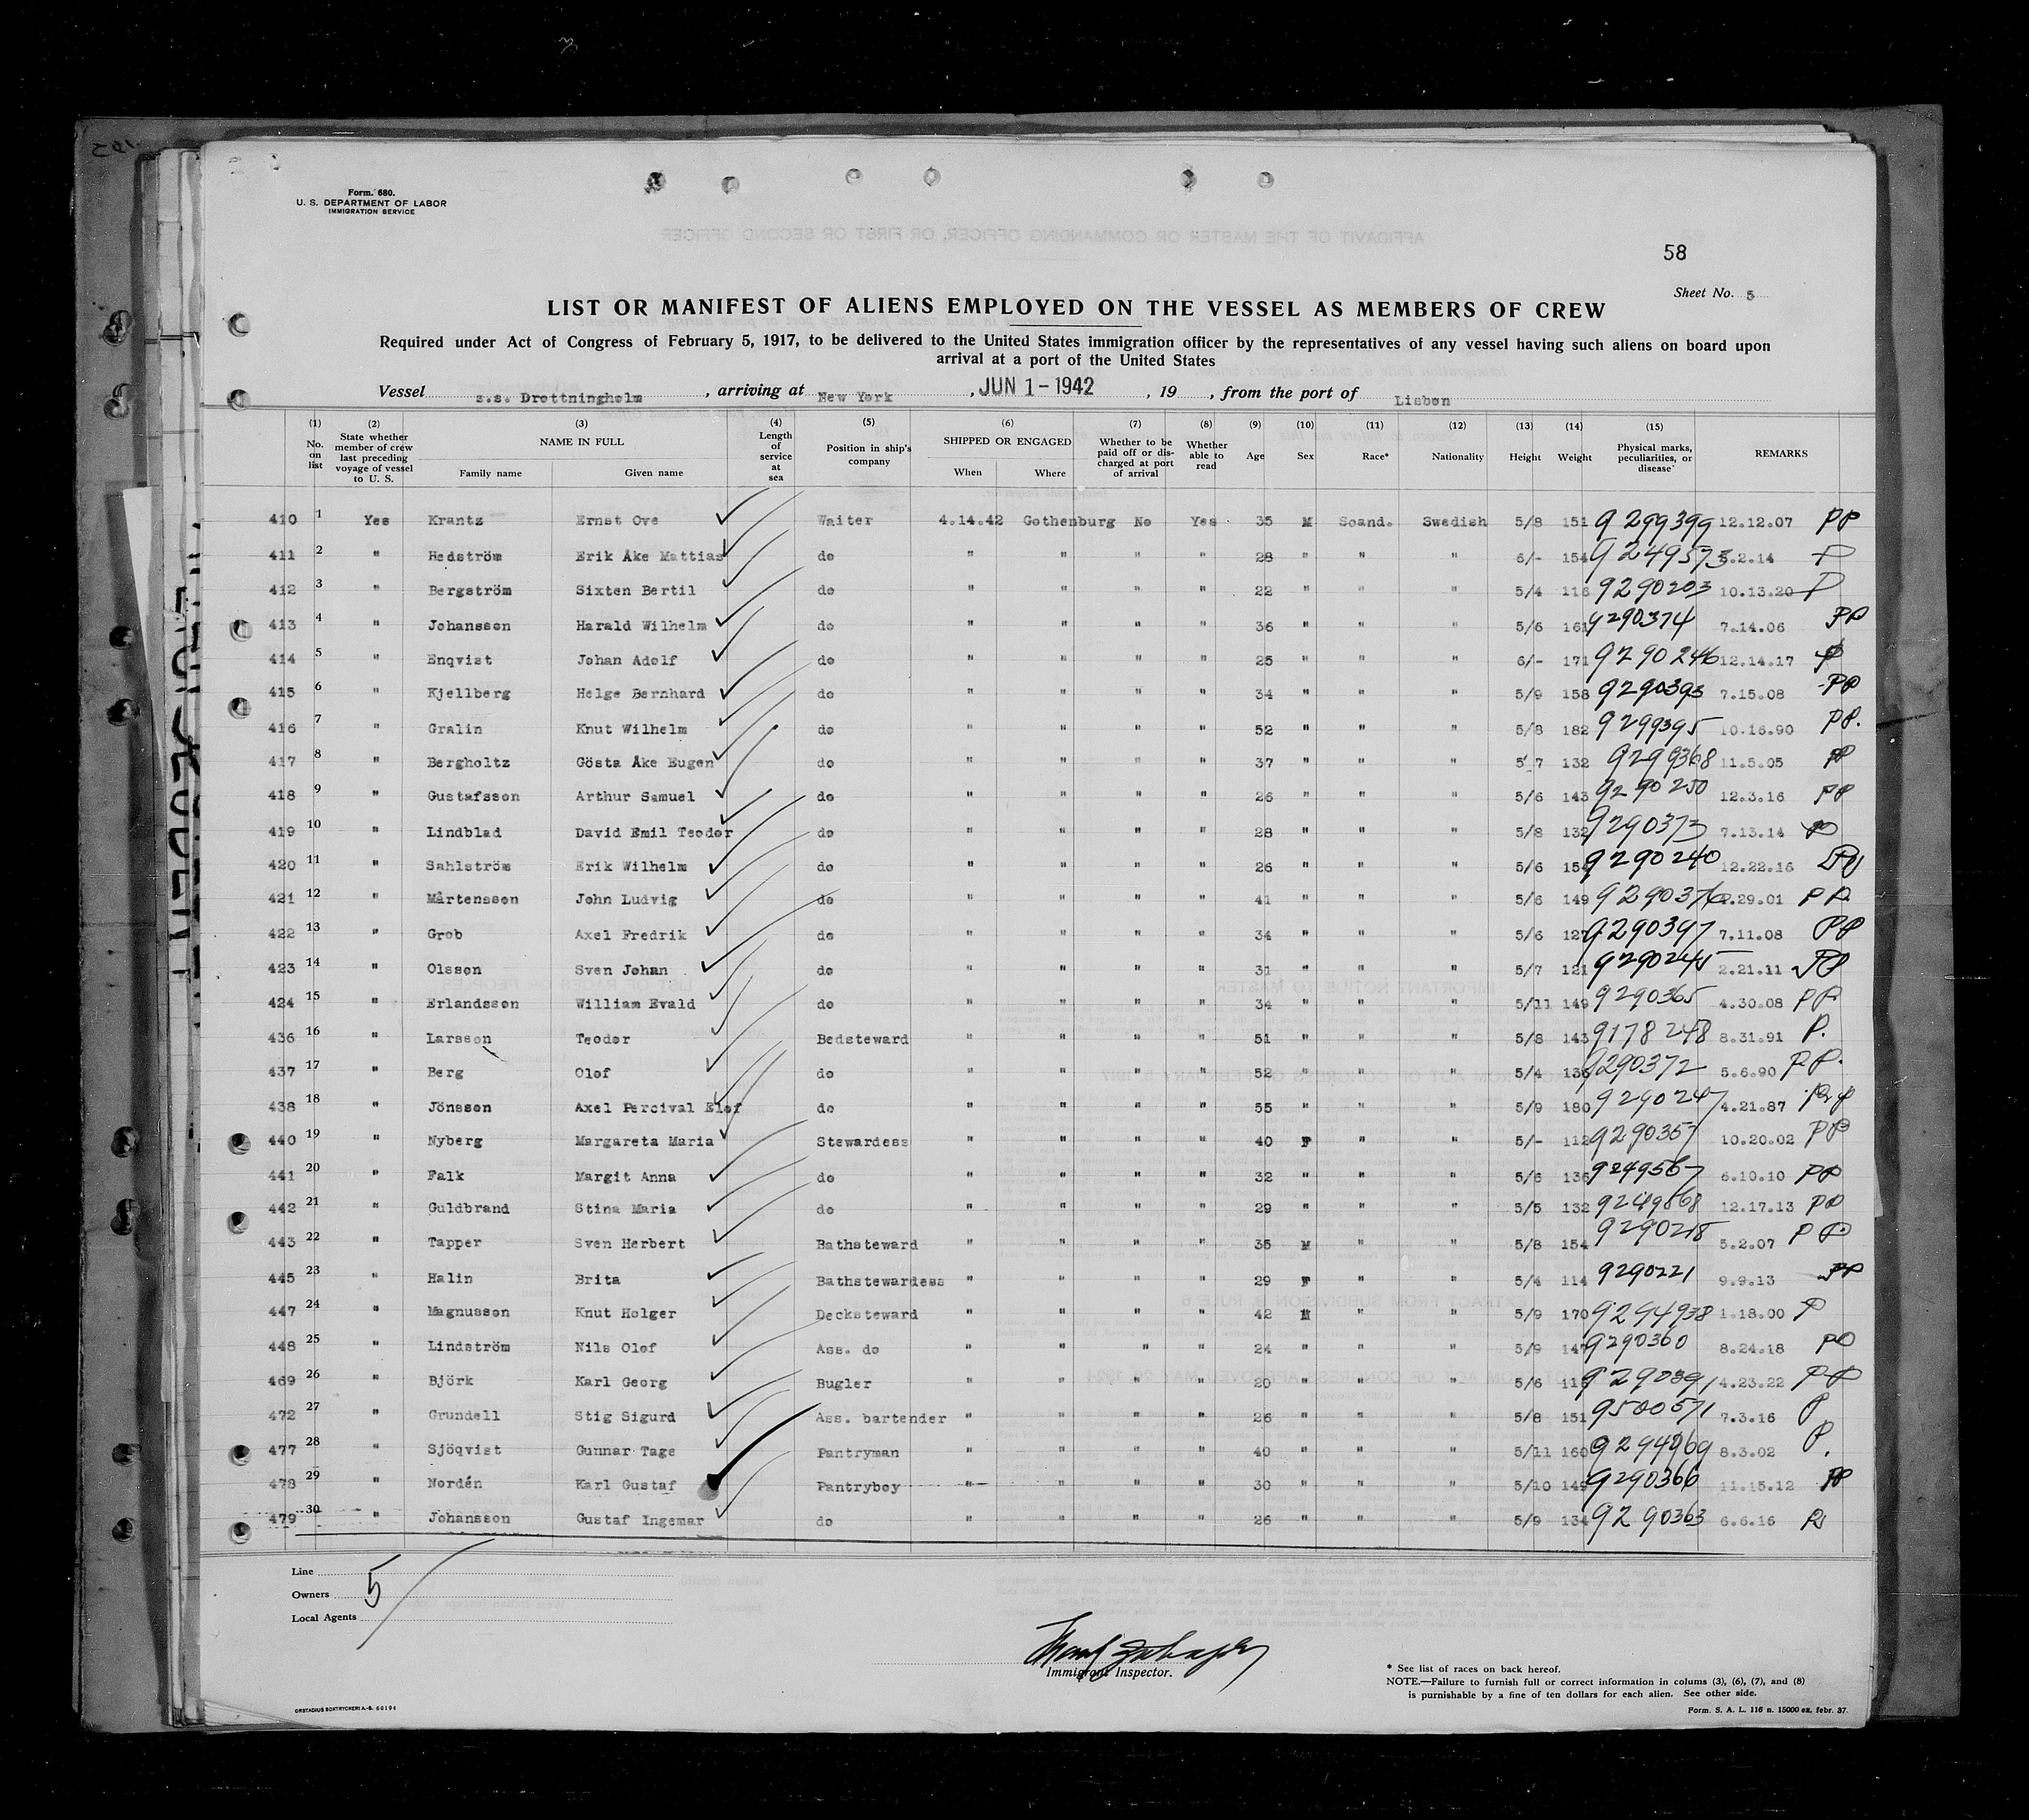 Form. 680.
U. S. DEPARTMENT OF LABOR
IMMIGRATION SERVICE
58
Sheet No. 5
LIST OR MANIFEST OF ALIENS EMPLOYED ON THE VESSEL AS MEMBERS OF CREW
Required under Act of Congress of February 5, 1917, to be delivered to the United States immigration officer by the representatives of any vessel having such aliens on board upon
arrival at a port of the United States
Vessel s.s. Drottningholm , arriving at New York , JUN 1 - 1942 , 19 , from the port of Lisbon
(1) No. on list (2) State whether member of crew last preceding voyage of vessel to U. S. (3) NAME IN FULL Family name Given name (4) Length of service at sea (5) Position in ship's company (6) SHIPPED OR ENGAGED When Where (7) Whether to be paid off or discharged at port of arrival (8) Whether able to read (9) Age (10) Sex (11) Race* (12) Nationality (13) Height (14) Weight (15) Physical marks, peculiarities, or disease REMARKS
410 1 Yes Krantz Ernst Ove Waiter 4.14.42 Gothenburg No Yes 35 M Scand. Swedish 5/8 151 9299399 12.12.07 PP
411 2 " Hedström Erik Åke Mattias do " " " " 28 " " " 6/- 154 9249573 .2.14 P
412 3 " Bergström Sixten Bertil do " " " " 22 " " " 5/4 116 9290203 10.13.20 P
413 4 " Johansson Harald Wilhelm do " " " " 36 " " " 5/6 161 9290374 7.14.06 PP
414 5 " Enqvist Johan Adolf do " " " " 25 " " " 6/- 171 9290246 12.14.17 P
415 6 " Kjellberg Helge Bernhard do " " " " 34 " " " 5/9 158 9290393 7.15.08 PP
416 7 " Gralin Knut Wilhelm do " " " " 52 " " " 5/8 182 9299395 10.16.90 PP.
417 8 " Bergholtz Gösta Åke Eugen do " " " " 37 " " " 5/7 132 9299368 11.5.05 PP
418 9 " Gustafsson Arthur Samuel do " " " " 26 " " " 5/6 143 9290250 12.3.16 PP
419 10 " Lindblad David Emil Teodor do " " " " 28 " " " 5/8 132 9290373 7.13.14 P
420 11 " Sahlström Erik Wilhelm do " " " " 26 " " " 5/6 154 9290240 12.22.16
421 12 " Mårtensson John Ludvig do " " " " 41 " " " 5/6 149 9290376 .29.01 PP
422 13 " Grob Axel Fredrik do " " " " 34 " " " 5/6 127 9290397 7.11.08 PP
423 14 " Olsson Sven Johan do " " " " 31 " " " 5/7 121 9290245 2.21.11 PP
424 15 " Erlandsson William Evald do " " " " 34 " " " 5/11 149 9290365 4.30.08 PP
436 16 " Larsson Teodor Bedsteward " " " " 51 " " " 5/8 143 9178248 8.31.91 P.
437 17 " Berg Olof do " " " " 52 " " " 5/4 136 9290372 5.6.90 P.P.
438 18 " Jönsson Axel Percival Elof do " " " " 55 " " " 5/9 180 9290247 4.21.87 PP
440 19 " Nyberg Margareta Maria Stewardess " " " " 40 F " " 5/- 112 9290357 10.20.02 PP
441 20 " Falk Margit Anna do " " " " 32 " " " 5/6 136 9249567 6.10.10 PP
442 21 " Guldbrand Stina Maria do " " " " 29 " " " 5/5 132 9249568 12.17.13 PP
443 22 " Tapper Sven Herbert Bathsteward " " " " 35 M " " 5/8 154 9290218 5.2.07 PP
445 23 " Halin Brita Bathstewardess " " " " 29 F " " 5/4 114 9290221 9.9.13 PP
447 24 " Magnusson Knut Holger Decksteward " " " " 42 M " " 5/9 170 9294938 1.18.00 P
448 25 " Lindström Nils Olof Ass. do " " " " 24 " " " 5/9 147 9290360 8.24.18 PP
469 26 " Björk Karl Georg Bugler " " " " 20 " " " 5/6 118 9290391 4.23.22 PP
472 27 " Grundell Stig Sigurd Ass. bartender " " " " 26 " " " 5/8 151 9500571 7.3.16 P
477 28 " Sjöqvist Gunnar Tage Pantryman " " " " 40 " " " 5/11 160 9294969 8.3.02 P.
478 29 " Nordén Karl Gustaf Pantryboy " " " " 30 " " " 5/10 149 9290366 11.15.12 PP
479 30 " Johansson Gustaf Ingemar do " " " " 26 " " " 5/9 134 9290363 6.6.16 P
Line
Owners 5
Local Agents
Immigrant Inspector.
* See list of races on back hereof.
NOTE.—Failure to furnish full or correct information in colums (3), (6), (7), and (8)
is purnishable by a fine of ten dollars for each alien. See other side.
ORSTADIUS BOKTRYCKERI A.-B. 66194
Form. S. A. L. 116 n. 15000 ex. febr. 37.